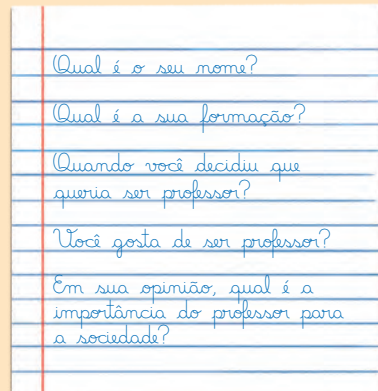 Qual é o seu nome?
Qual é a sua formação?
Quando você decidiu que
queria ser professor?
Você gosta de ser professor?
Em sua opinião, qual é a
importância do professor para
a sociedade?